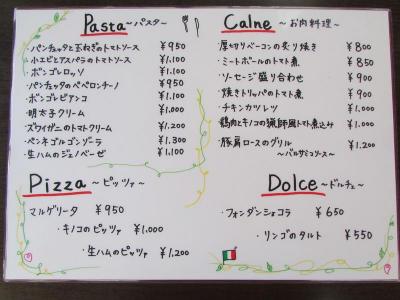 Pasta ～パスタ～
・パンチェッタと玉ねぎのトマトソース ¥950
・小エビとアスパラのトマトソース ¥1,100
・ボンゴレロッソ ¥1,100
・パンチェッタのペペロンチーノ ¥950
・ボンゴレビアンコ ¥1,000
・明太子クリーム ¥1,000
・ズワイガニのトマトクリーム ¥1,200
・ペンネゴルゴンゾーラ ¥1,300
・生ハムのジェノベーゼ ¥1,100
Pizza ～ピッツァ～
マルゲリータ ¥950
・キノコのピッツァ ¥1,000
・生ハムのピッツァ ¥1,200
Calne ～お肉料理～
・厚切りベーコンの炙り焼き ¥800
・ミートボールのトマト煮 ¥850
・ソーセージ盛り合わせ ¥900
・焼きトリッパのトマト煮 ¥900
・チキンカツレツ ¥1,000
・鶏肉とキノコの猟師風トマト煮込み ¥1,000
・豚肩ロースのグリル ¥1,200
～バルサミコソース～
Dolce ～ドルチェ～
・フォンダンショコラ ¥650
・リンゴのタルト ¥550